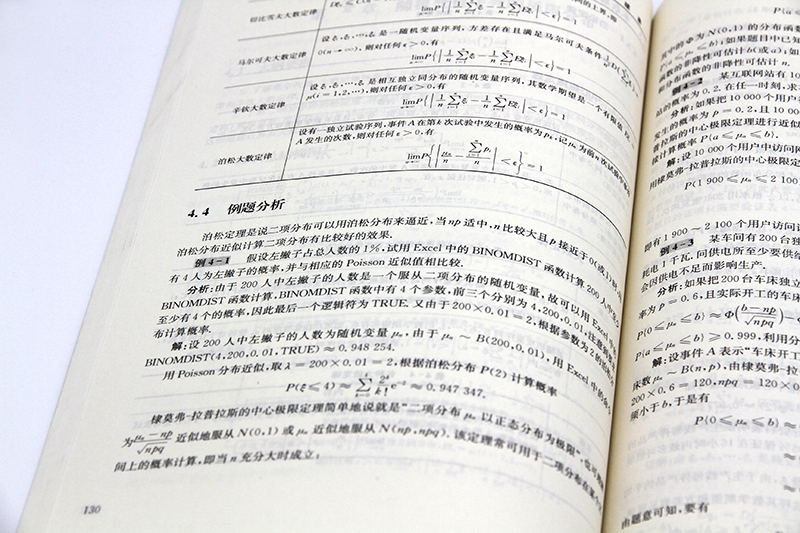 切比雪夫大数定律
马尔可夫大数定律
设ξ₁,ξ₂,…,ξₙ是一随机变量序列,方差存在且满足马尔可夫条件
0(n→∞),则对任何ε>0,有
辛钦大数定律
设ξ₁,ξ₂,…,ξₙ是相互独立同分布的随机变量序列,其数学期望是一个有限值
μ(i=1,2,…),则对任何ε>0,有
泊松大数定律
设有一独立试验序列,事件A在第k次试验中发生的概率为pₖ,记μₙ为前n次试验中事件
A发生的次数,则对任何ε>0,有
4.4 例题分析
泊松定理是说二项分布可以用泊松分布来逼近,当np适中,n比较大且p接近于0(或1)时,用
泊松分布近似计算二项分布有比较好的效果.
例4-1 假设左撇子占总人数的1%,试用Excel中的BINOMDIST函数计算200人中
有4人为左撇子的概率,并与相应的Poisson近似值相比较.
分析:由于200人中左撇子的人数是一个服从二项分布的随机变量,故可以用Excel中的
BINOMDIST函数计算,BINOMDIST函数中有4个参数,前三个分别为4,200,0.01,注意到
至少有4个的概率,因此最后一个逻辑符为TRUE.又由于200×0.01=2,根据参数为2的泊松分
布计算概率.
解:设200人中左撇子的人数为随机变量μₙ,由于μₙ~B(200,0.01),用Excel中的命令
BINOMDIST(4,200,0.01,TRUE)≈0.948 254.
用Poisson分布近似,取λ=200×0.01=2,根据泊松分布P(2)计算概率
P(ξ≤4)≈∑2ᵏ/k! e⁻²≈0.947 347.
棣莫弗-拉普拉斯的中心极限定理简单地说就是“二项分布μₙ以正态分布为极限”,也可
为(μₙ-np)/√npq近似地服从N(0,1)或μₙ近似地服从N(np,npq).该定理常可用于二项分布在某个区
间上的概率计算,即当n充分大时成立:
130
其中的Φ为N(0,1)的分布函数
例4-2 某互联网站有10
站的概率为0.2.在任一时刻,求
分析:如果把10 000个用户
发生的概率为p=0.2,且10 0
普拉斯的中心极限定理进行近似
接计算概率P(a≤μₙ≤b).
解:设10 000个用户中访问网
用棣莫弗-拉普拉斯的中心极限定
P(1 900≤μₙ≤2 100
即有1 900~2 100个用户访问
例4-3 某车间有200台独
耗电1千瓦.问供电所至少要供给
会因供电不足而影响生产.
分析:如果把200台车床独立
率为P=0.6,且实际开工的车床
P(0≤μₙ≤b)≈Φ((b-np)/√npq)-
P(a≤μₙ≤b)≥0.999,利用分
解:设事件A表示“车床开工
床数μₙ~B(n,p),由棣莫弗-拉
200×0.6=120,npq=120×0
须小于b,于是有
P(0≤μₙ≤b)≈
由题意可知,要有